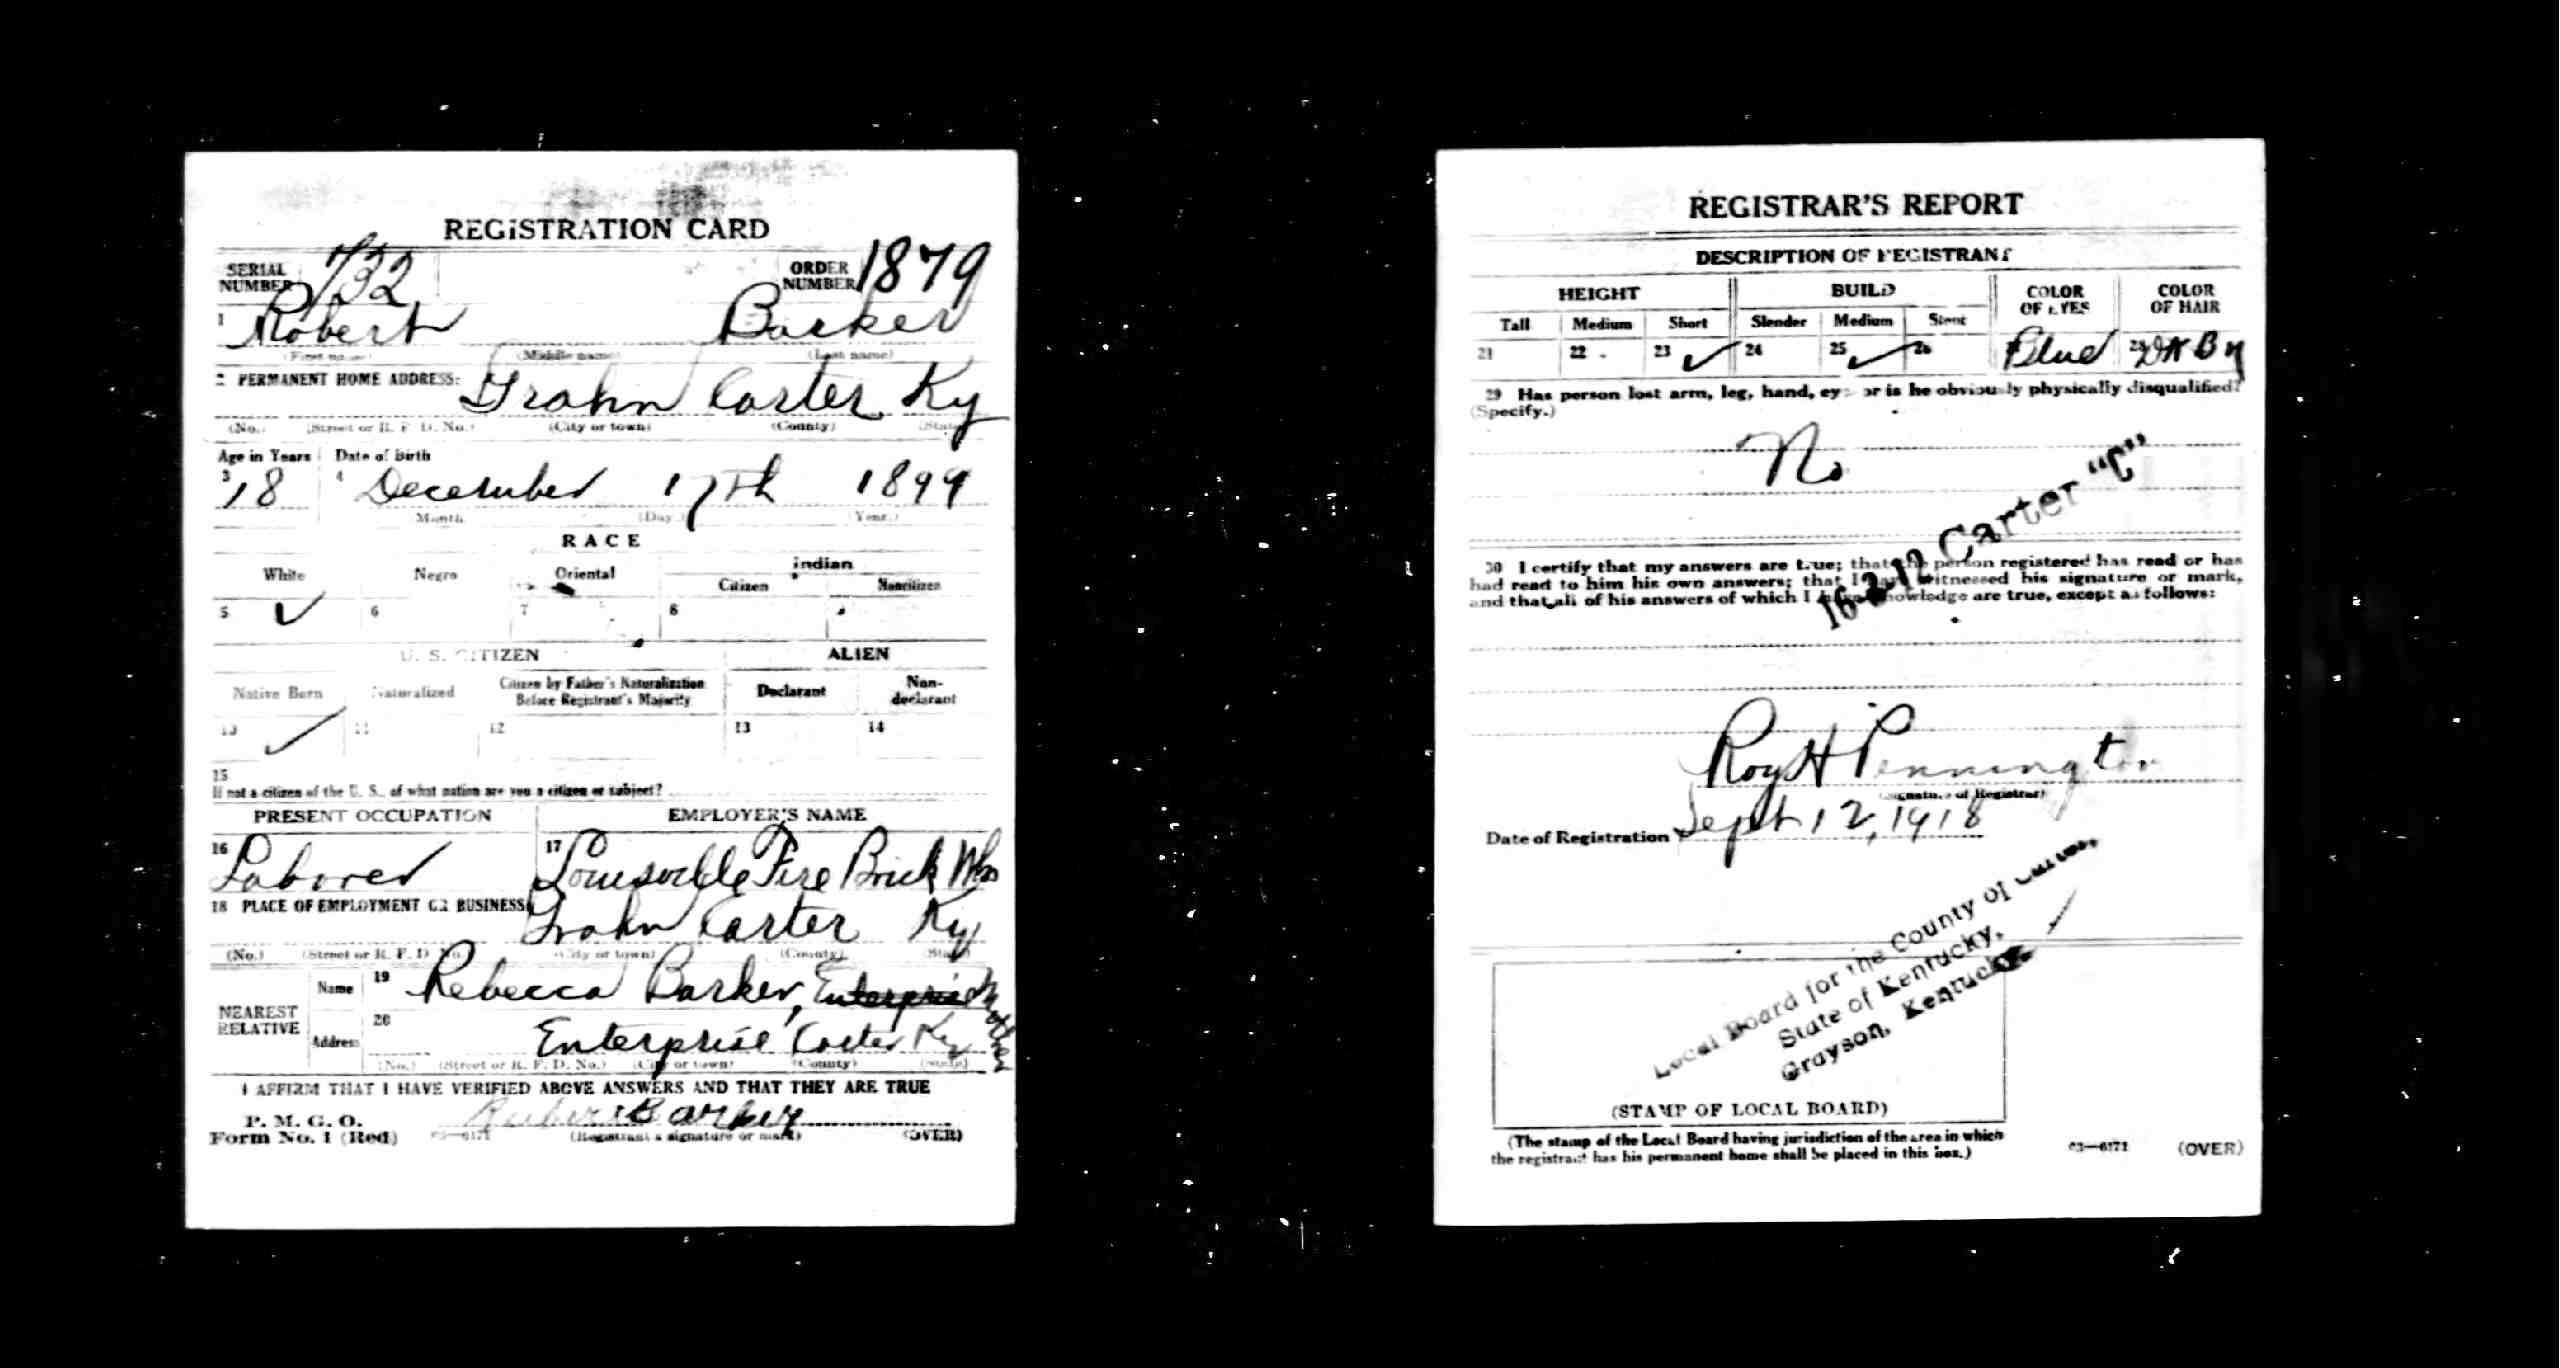 REGISTRATION CARD
SERIAL NUMBER 732 ORDER NUMBER 1879
1 Robert Barker
(First name) (Middle name) (Last name)
2 PERMANENT HOME ADDRESS: Grahn Carter Ky
(No.) (Street or R. F. D. No.) (City or town) (County) (State)
Age in Years Date of Birth
3 18 4 December 17th 1899
Month (Day.) (Year.)
RACE
White Negro Oriental Indian
Citizen Noncitizen
5 ✓ 6 7 8
U. S. CITIZEN ALIEN
Native Born Naturalized Citizen by Father's Naturalization Before Registrant's Majority Declarant Non-declarant
10 ✓ 11 12 13 14
15
If not a citizen of the U. S., of what nation are you a citizen or subject?
PRESENT OCCUPATION EMPLOYER'S NAME
16 Laborer 17 Louisville Fire Brick Wks
18 PLACE OF EMPLOYMENT OR BUSINESS Grahn Carter Ky
(No.) (Street or R. F. D. No.) (City or town) (County) (State)
NEAREST RELATIVE
Name 19 Rebecca Barker, Enterprise Mother
Address 20 Enterprise Carter Ky
(No.) (Street or R. F. D. No.) (City or town) (County) (State)
I AFFIRM THAT I HAVE VERIFIED ABOVE ANSWERS AND THAT THEY ARE TRUE
P. M. G. O.
Form No. 1 (Red) 03—6171 Robert Barker
(Registrant's signature or mark) (OVER)
REGISTRAR'S REPORT
DESCRIPTION OF REGISTRANT
HEIGHT BUILD COLOR OF EYES COLOR OF HAIR
Tall Medium Short Slender Medium Stout
21 22 23 ✓ 24 25 ✓ 26 Blue 28 DK Bn
29 Has person lost arm, leg, hand, eye, or is he obviously physically disqualified?
(Specify.)
No
16-2-12 Carter "C"
30 I certify that my answers are true; that the person registered has read or has
had read to him his own answers; that I have witnessed his signature or mark,
and that all of his answers of which I have knowledge are true, except as follows:
Roy H Pennington
(Signature of Registrar)
Date of Registration Sept 12, 1918
Local Board for the County of Carter,
State of Kentucky,
Grayson, Kentucky.
(STAMP OF LOCAL BOARD)
(The stamp of the Local Board having jurisdiction of the area in which
the registrant has his permanent home shall be placed in this box.)
03—6171 (OVER)